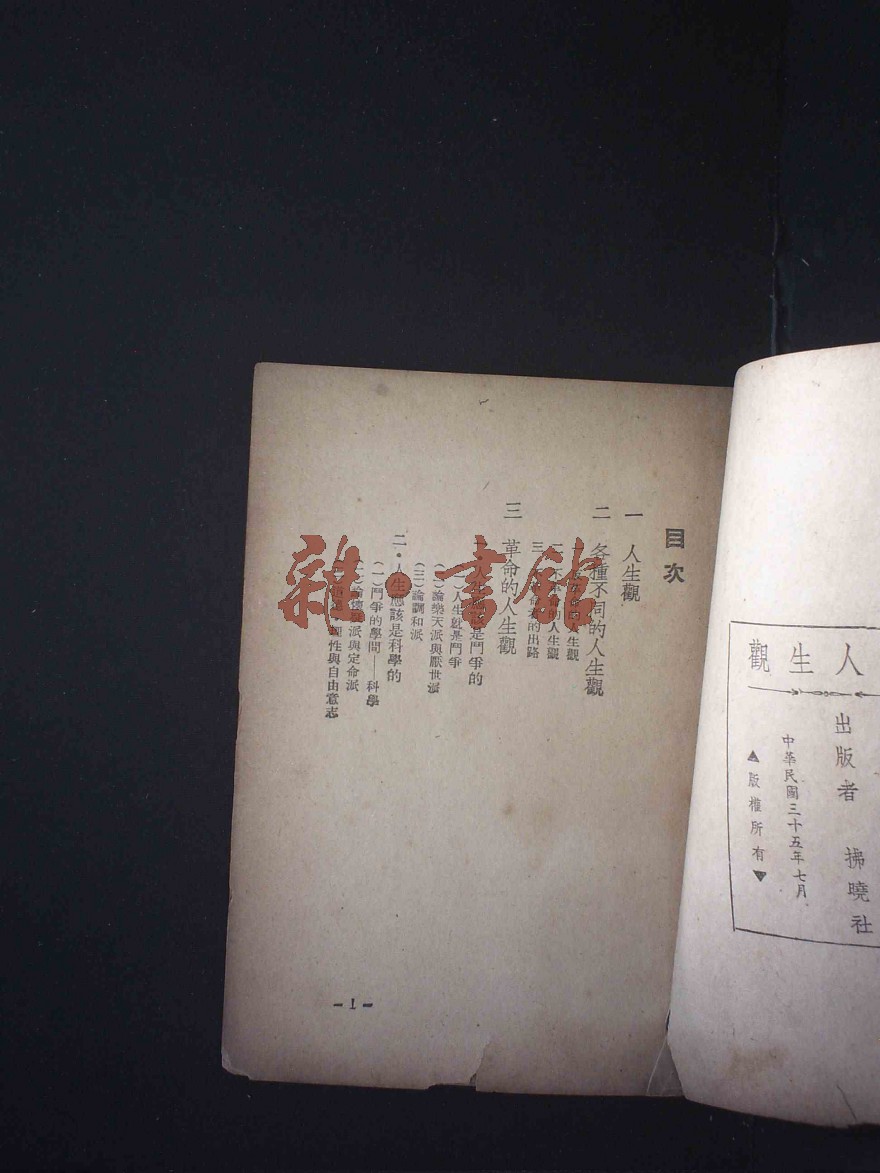 人生觀
出版者 拂曉社
中華民國三十五年七月
▲版權所有▼
目次
一 人生觀
二 各種不同的人生觀
的人生觀
的人生觀
三 的出路
三 革命的人生觀
是鬥爭的
人生就是鬥爭
論樂天派與厭世派
(三)論調和派
二・人生應該是科學的
(一)鬥爭的學問——科學
論懷疑派與定命派
理性與自由意志
-1-
雜・書館